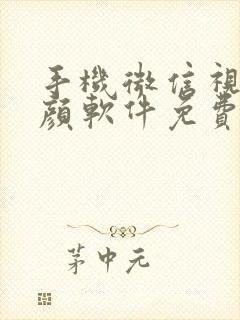 手機微信視
顏軟件免費
茅中元